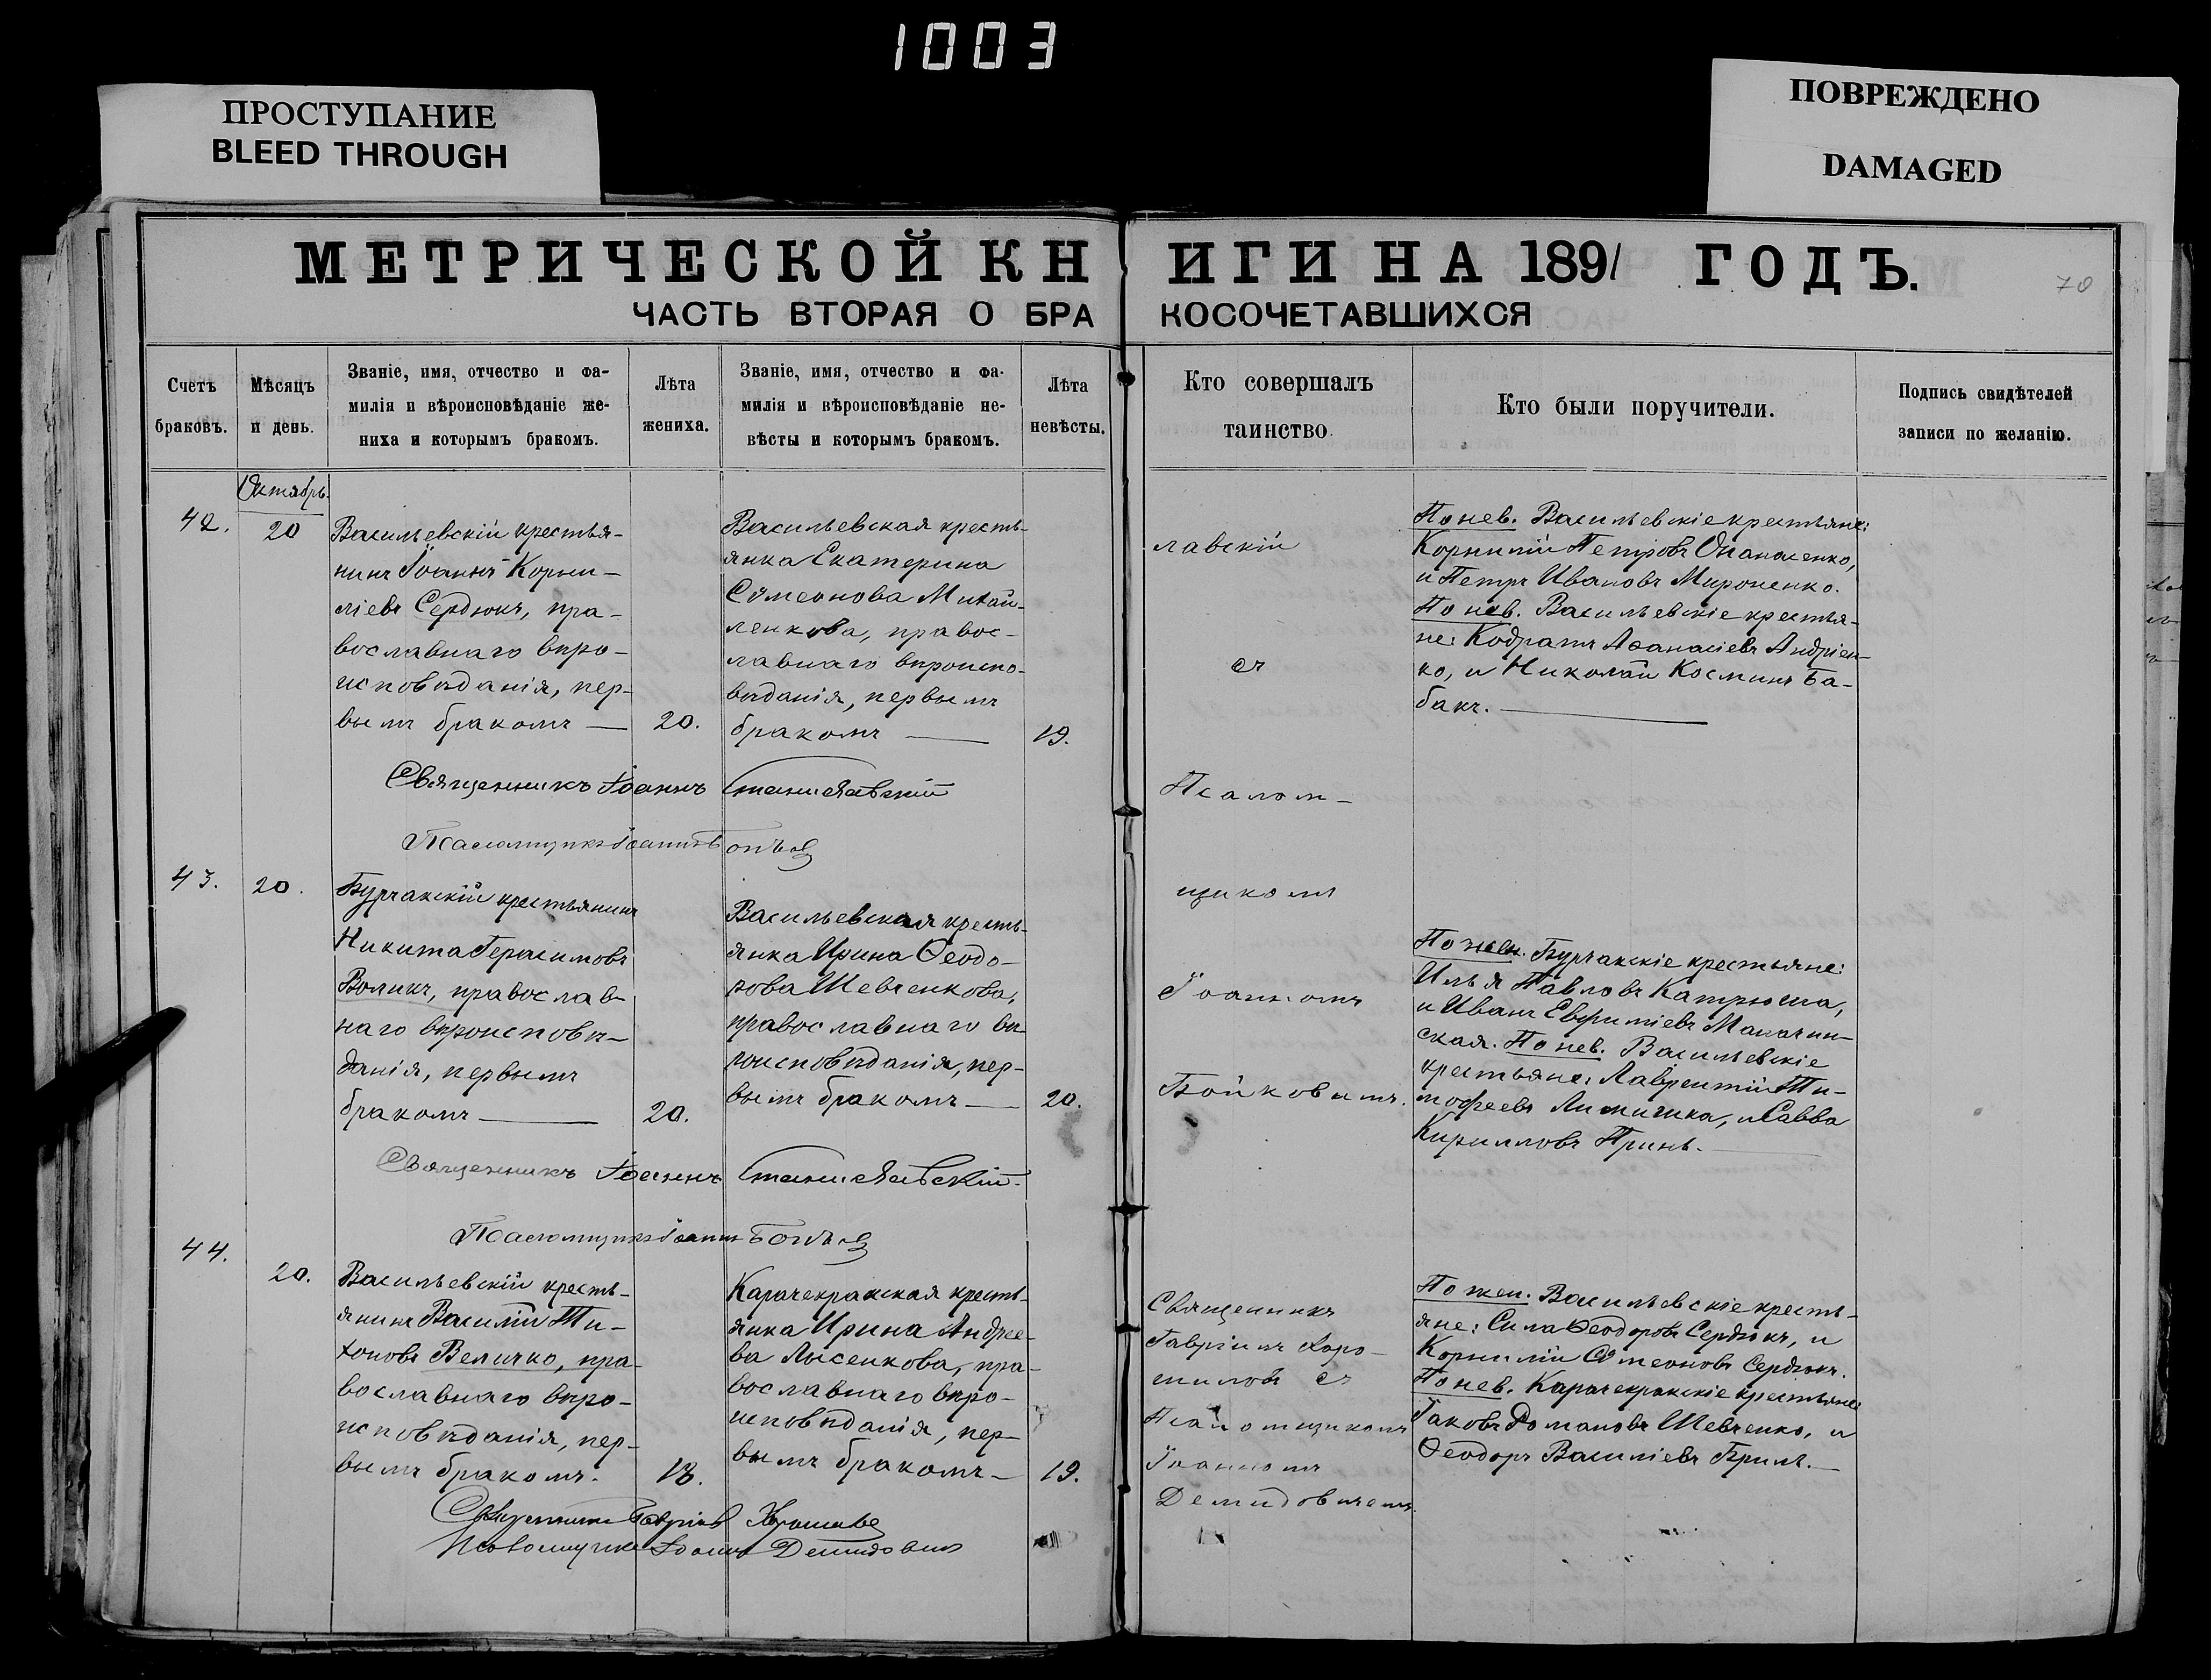 1003
ПРОСТУПАНИЕ
BLEED THROUGH
ПОВРЕЖДЕНО
DAMAGED
МЕТРИЧЕСКОЙ КНИГИ НА 1891 ГОДЪ.
70
ЧАСТЬ ВТОРАЯ О БРАКОСОЧЕТАВШИХСЯ
Счетъ
браковъ.
Мѣсяцъ
и день.
Званіе, имя, отчество и фа-
милія и вѣроисповѣданіе же-
ниха и которымъ бракомъ.
Лѣта
жениха.
Званіе, имя, отчество и фа-
милія и вѣроисповѣданіе не-
вѣсты и которымъ бракомъ.
Лѣта
невѣсты.
Кто совершалъ
таинство.
Кто были поручители.
Подпись свидѣтелей
записи по желанію.
42.
Октябрь.
20
Васильевскій крестья-
нинъ Іоаннъ Корни-
ліевъ Сердюкъ, пра-
вославнаго вѣро-
исповѣданія, пер-
вымъ бракомъ —
20.
Васильевская кресть-
янка Екатерина
Сѵмеонова Михай-
ленкова, правос-
лавнаго вѣроиспо-
вѣданія, первымъ
бракомъ —
19.
лавскій
съ
По нев. Васильевскіе крестьяне:
Корнилій Петровъ Опанасенко,
и Петръ Ивановъ Мироненко.
По нев. Васильевскіе крестья-
не: Кодратъ Аѳанасіевъ Андріен-
ко, и Николай Косминъ Ба-
бакъ. —
Священникъ Іоаннъ Станиславскій
Псаломщикъ Іоаннъ
Псалом-
43.
20.
Бурчакскій крестьянинъ
Никита Герасимовъ
Воликъ, православ-
наго вѣроисповѣ-
данія, первымъ
бракомъ —
20.
Васильевская кресть-
янка Ирина Ѳеодо-
рова Шевченкова,
православнаго вѣ-
роисповѣданія, пер-
вымъ бракомъ —
20.
щикомъ
Іоанномъ
Бойковымъ.
По жен. Бурчакскіе крестьяне:
Илья Павловъ Катрюша,
и Иванъ Евфиміевъ
ская. По нев. Васильевскіе
крестьяне: Лаврентій Ти-
мофеевъ и Савва
Кирилловъ Гринь. —
Священникъ Іоаннъ Станиславскій.
Псаломщикъ Іоаннъ
44.
20.
Васильевскій кресть-
янинъ Василій Ти-
хоновъ Величко, пра-
вославнаго вѣро-
исповѣданія, пер-
вымъ бракомъ.
18.
Карачекракская кресть-
янка Ирина Андрее-
ва Лысенкова, пра-
вославнаго вѣро-
исповѣданія, пер-
вымъ бракомъ —
19.
Священникъ
Гавріилъ Хоро-
шиловъ съ
Псаломщикомъ
Іоанномъ
Демидовичемъ.
По жен. Васильевскіе кресть-
яне: Сила Ѳеодоровъ Сердюкъ, и
Корнилій Сѵмеоновъ Сердюкъ.
По нев. Карачекракскіе крестьяне:
Іаковъ Романовъ Шевченко, и
Ѳеодоръ Василіевъ Бриль. —
Священникъ Гавріилъ Хорошиловъ
Псаломщикъ Іоаннъ Демидовичъ